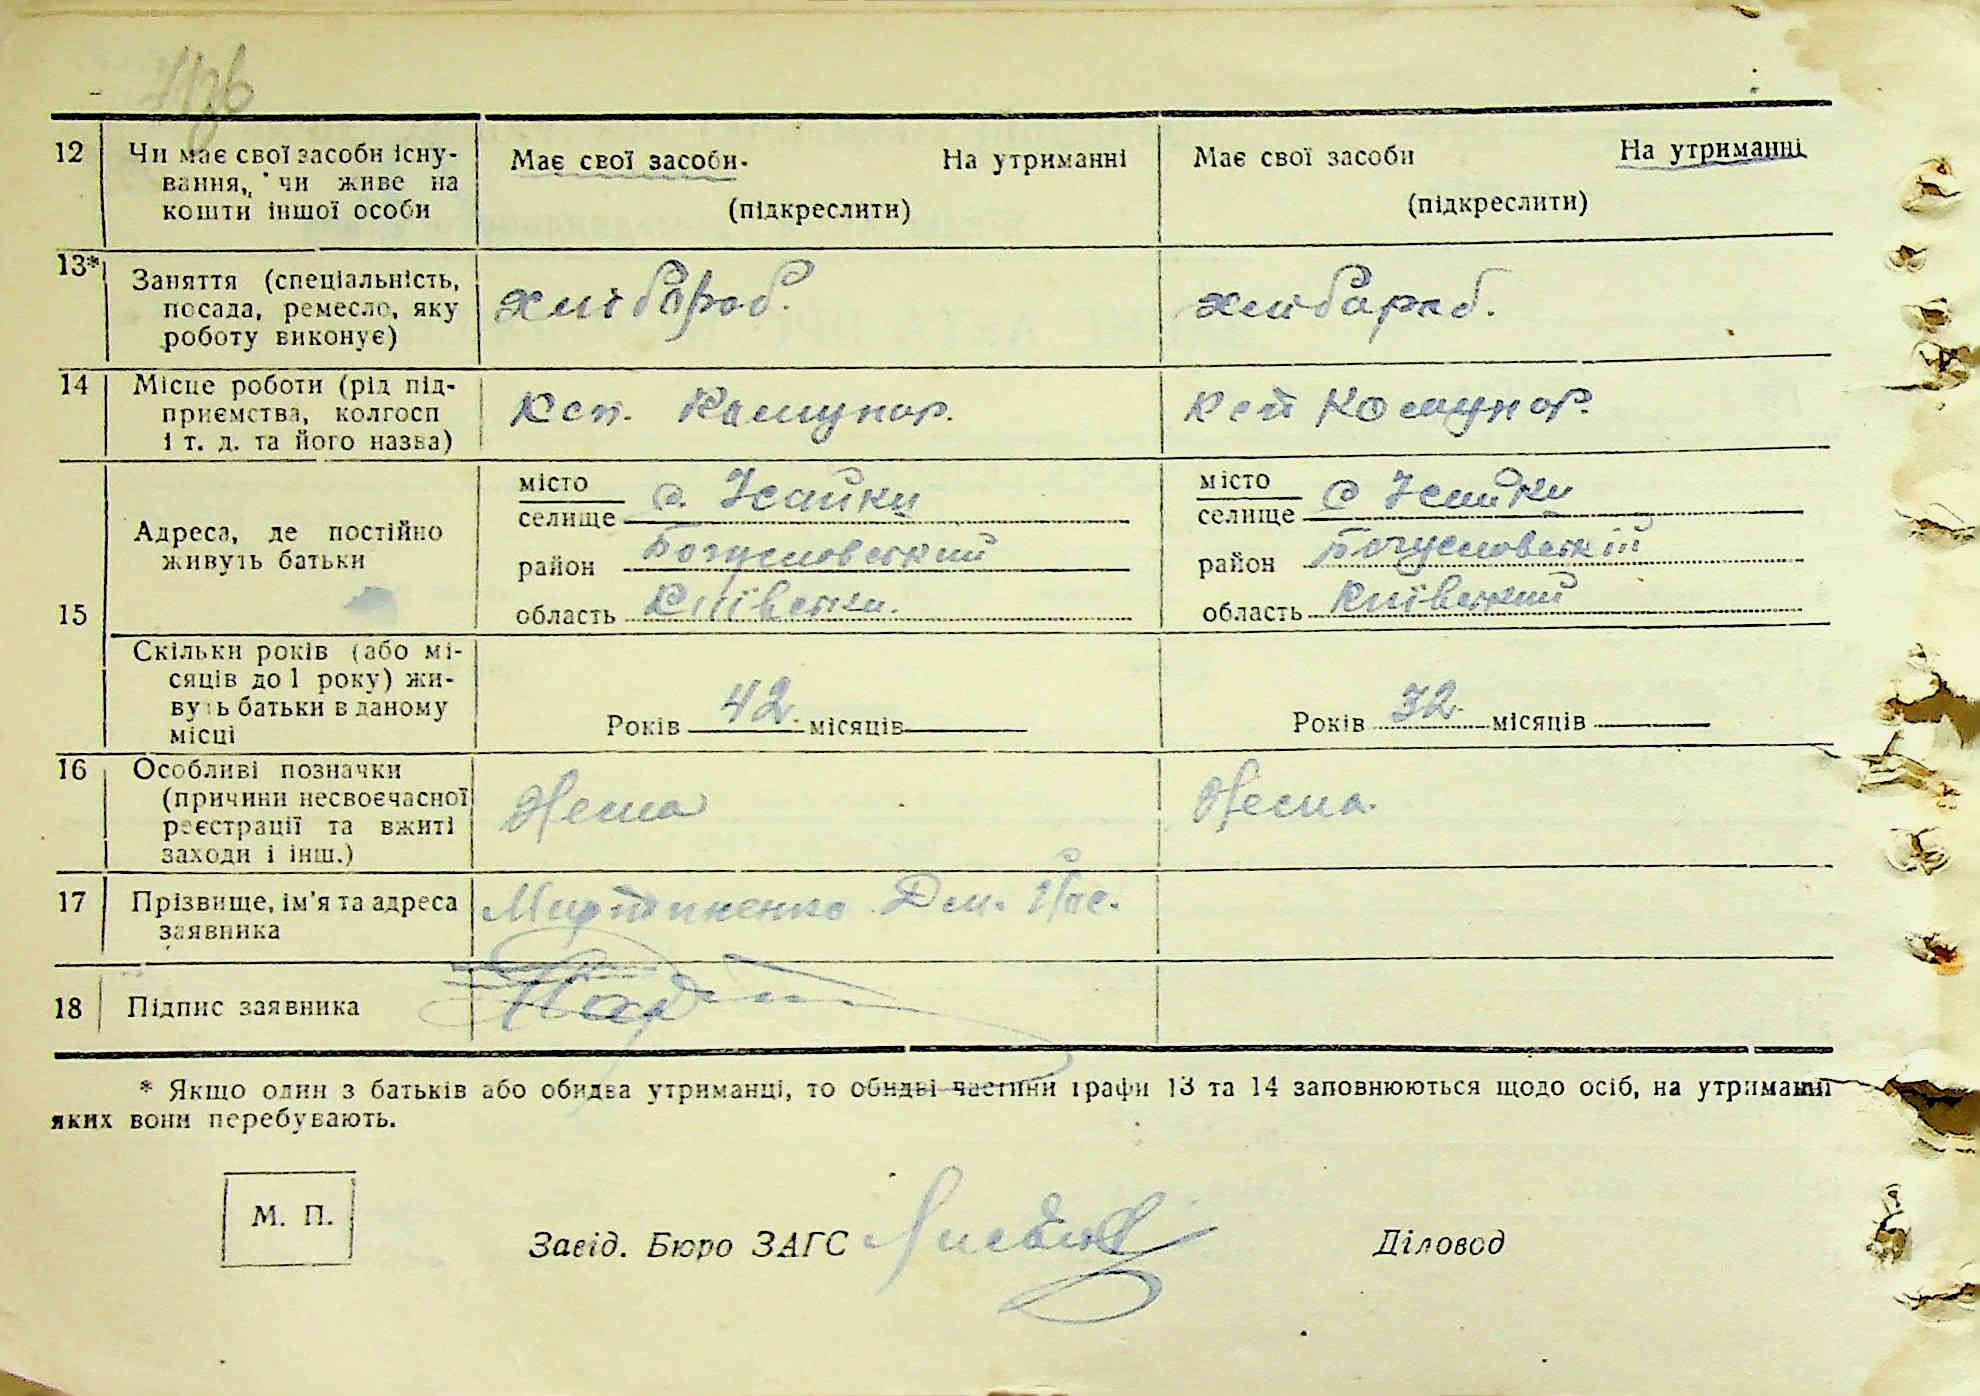 12 Чи має свої засоби існу- Має свої засоби. На утриманні Має свої засоби На утриманні
вання, чи живе на
кошти іншої особи (підкреслити) (підкреслити)
13* Заняття (спеціальність,
посада, ремесло, яку хлібороб. хлібороб.
роботу виконує)
14 Місце роботи (рід під-
приємства, колгосп Ксп. Комунар. Ксп Комунар.
і т. д. та його назва)
місто місто
селище с. Ісайки селище с Ісайки
Адреса, де постійно
живуть батьки район Богуславський район Богуславський
15 область Київськ. область Київський
Скільки років (або мі-
сяців до 1 року) жи-
вуть батьки в даному Років 42. місяців Років 32. місяців
місці
16 Особливі позначки
(причини несвоєчасної Нема Нема.
реєстрації та вжиті
заходи і інш.)
17 Прізвище, ім'я та адреса Мартиненко Дем. Яс.
заявника
18 Підпис заявника
* Якщо один з батьків або обидва утриманці, то обидві частини графи 13 та 14 заповнюються щодо осіб, на утриманні
яких вони перебувають.
М. П.
Завід. Бюро ЗАГС Діловод